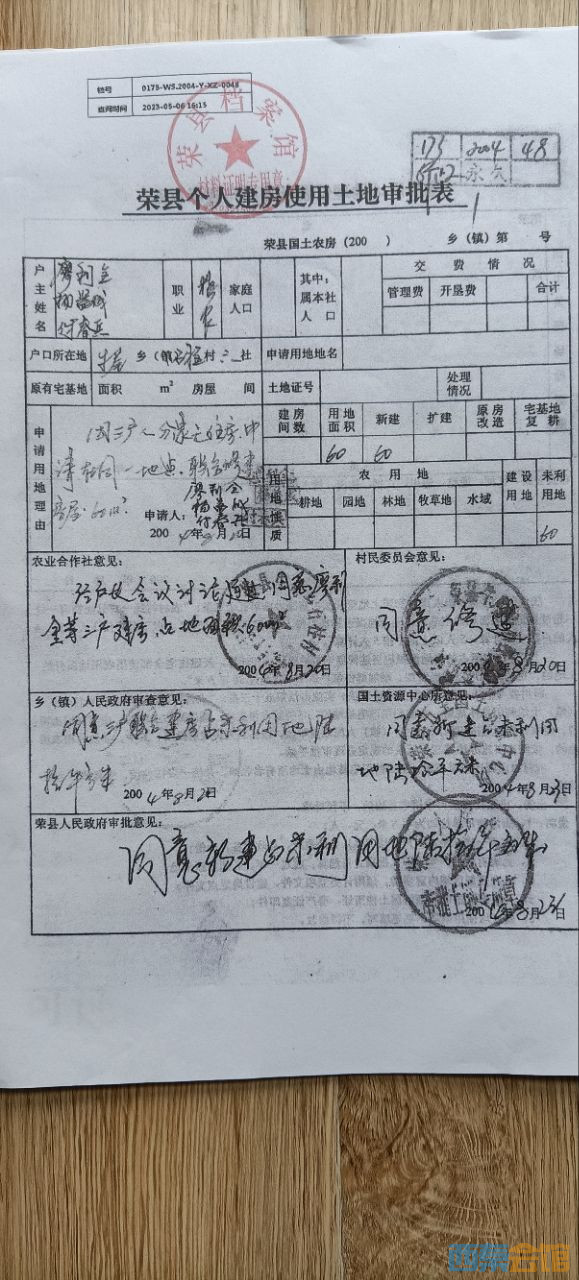 档号 0175-WS.2004-Y-XZ-0048
查阅时间 2023-05-06 16:15
荣县档案馆
材料证明专用章
173 2004 48
永久
荣县个人建房使用土地审批表
荣县国土农房(200 ) 乡(镇)第 号
户主姓名 廖利全 职业 务农 家庭人口 其中:属本社人口 交费情况
管理费 开垦费 合计
户口所在地 乡(镇) 村 社 申请用地地名
原有宅基地 面积 m² 房屋 间 土地证号 处理情况
申请用地理由 因三户人分家无住房.申
请在同一地点.联合修建
房屋.60m²
申请人: 廖利全
2004年8月20日
建房间数 用地面积 新建 扩建 原房改造 宅基地复耕
60 60
用地性质 农用地 建设用地 未利用地
耕地 园地 林地 牧草地 水域
60
农业合作社意见:
经户主会议讨论通过同意廖利
全等三户建房占地面积60m²
2004年8月20日
村民委员会意见:
同意修建
2004年8月20日
乡(镇)人民政府审查意见:
同意三户联合建房占未利用地陆
拾平方米 2004年8月2 日
国土资源中心所意见:
同意新建占未利用
地陆拾平方米
2004年8月23日
荣县人民政府审批意见:
同意新建占未利用地陆拾平方米
2004年8月23日